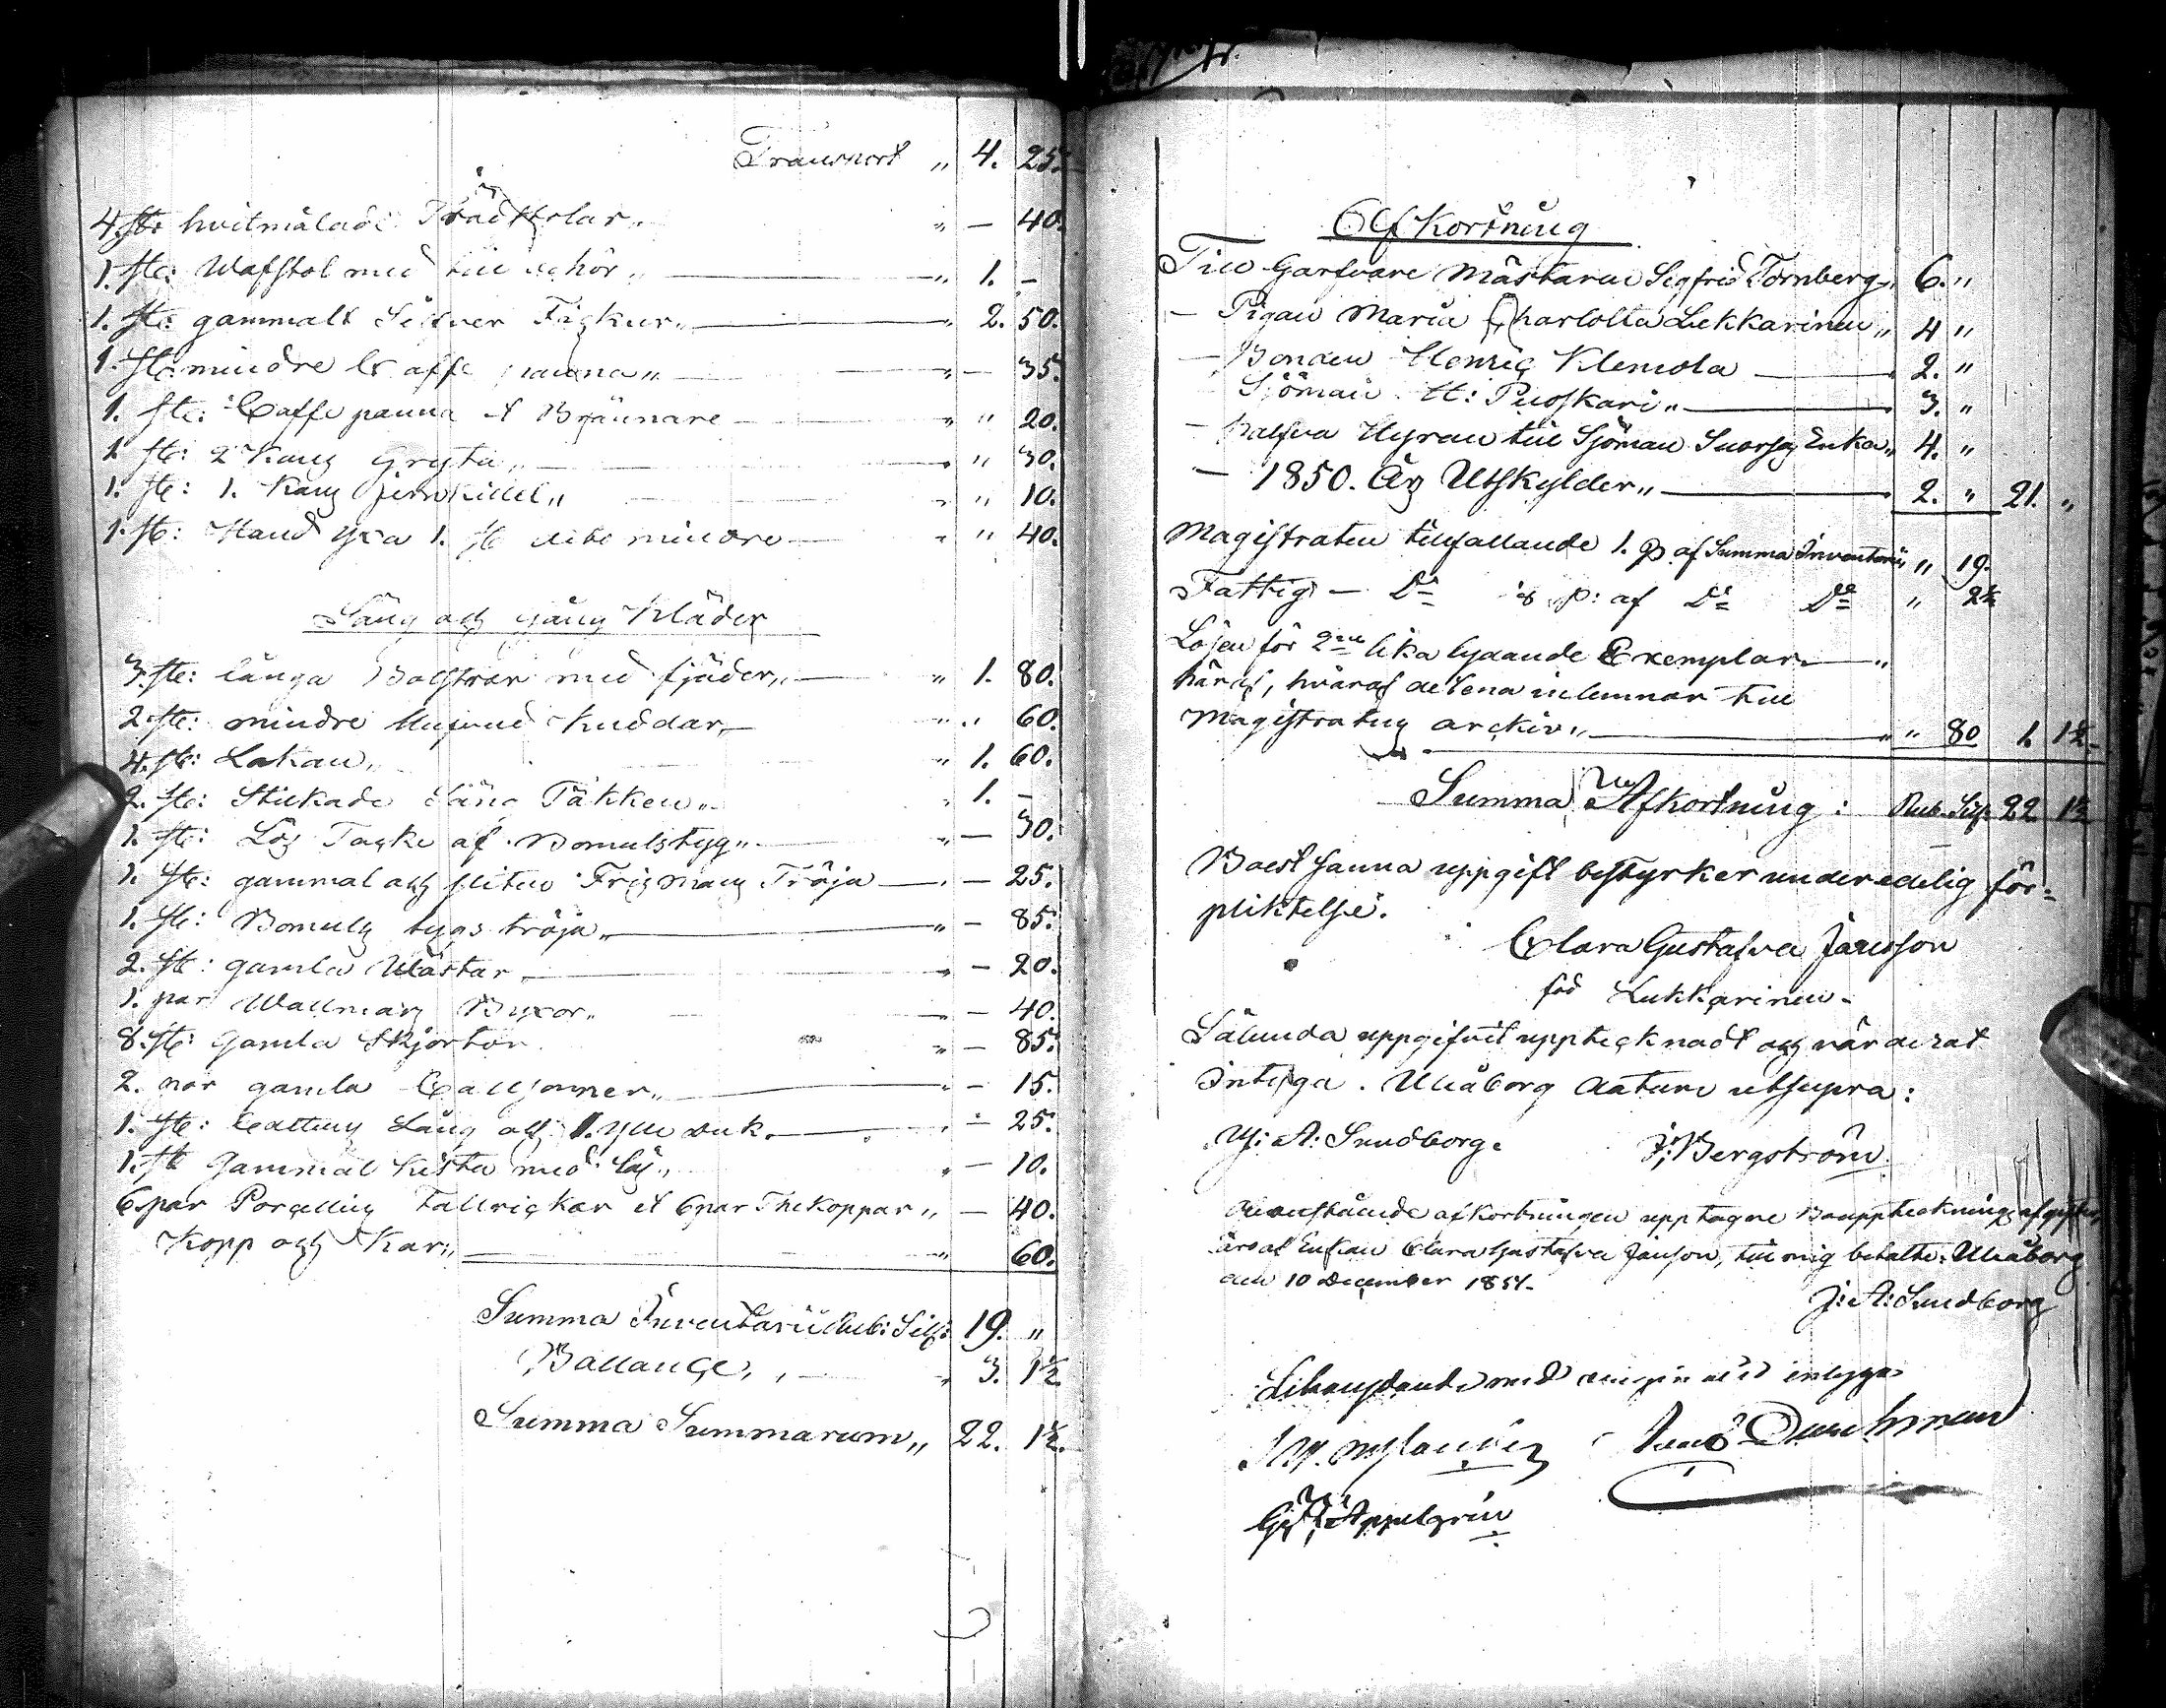 Transport " 4. 25.
4. st: hvitmålade Trädstolar " — 40.
1. st: Wäfstol med till behör " 1. —
1. st: gammalt Silfver Fickur " 2. 50.
1. st: mindre Caffe panna " — 35.
1. st: Caffe panna et Brännare " " 20.
1 st: 2 Kans Gryta " " 30.
1. st: 1. Kans jernkittel " " 10.
1. st: Hand yxa 1. st dito mindre " " 40.
Säng och gång Kläder
3. st: långa Bolstrar med fjäder " 1. 80.
2. st: mindre Hufvud Kuddar " " 60.
4. st: Lakan " 1. 60.
2. st: Stickade Säng Täkken " 1. —
1. st: Lös Täcke af Bomulstyg " — 30.
1. st: gammal och sliten Tröja — 25.
1. st: Bomuls tygs tröja " — 85.
2. st: gamla Wästar " — 20.
1. par Wallmans Buxor " — 40.
8. st: gamla Skjortor " — 85.
2. par gamla Callsonger " — 15.
1. st: Cattuns Säng och 1. ylle duk — 25.
1. st gammal Kista med lås " — 10.
6 par Porcellins Tallrickar et 6 par The koppar " — 40.
Kopp och Kar " 60.
Summa Inventarii Rub: Silf: 19. "
Ballance, " 3. 1½.
Summa Summarum " 22. 1½.
Afkortning
Till Garfvare Mästaren Sigfrid Tornberg " 6. "
— Pigan Maria Charlotta Lukkarinen " 4 "
— Bonden Henric Klemola 2. "
Sjöman H: Puoskari " 3. "
— halfva Hyran till Sjöman Enka " 4. "
— 1850. Års Utskylder " 2. " 21. "
Magistraten tillfallande 1. p. af Summa Inventarii " 19.
Fattig — Do ⅛ p: af Do Do " 2½
Lösen för 2ne lika lydande Exemplar "
häraf, hvaraf det ena inlemnar till
Magistratens arckiv " " 80 1. 1½
Summa Afkortning: Rub. Silf. 22 1½
Bäst sanna uppgift bestyrker under edelig för-
pliktelse.
Clara Gustafva Jansson
föd Lukkarinen
Sålunda uppgifvit uppteck nadt och värderat
intyga. Uleåborg datum utsupra:
J: A: Sundborg. J: Bergström
Ofvanstående afkortningen upptagne Bouppteckningsafgifter,
äro af Enkan Clara Gustafva Janson, till mig betalte. Uleåborg
den 10 December 1851.
J: A: Sundborg
Likalydande med intyga
Appelgrén